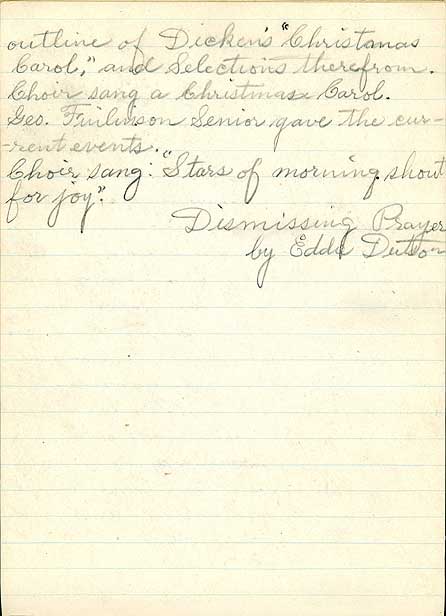 outline of Dicken's "Christmas
Carol," and Selections therefrom.
Choir sang a Christmas Carol.
Geo. Finlinson Senior gave the cur-
-rent events.
Choir sang: "Stars of morning shout
for joy".
Dismissing Prayer
by Eddy Dutson